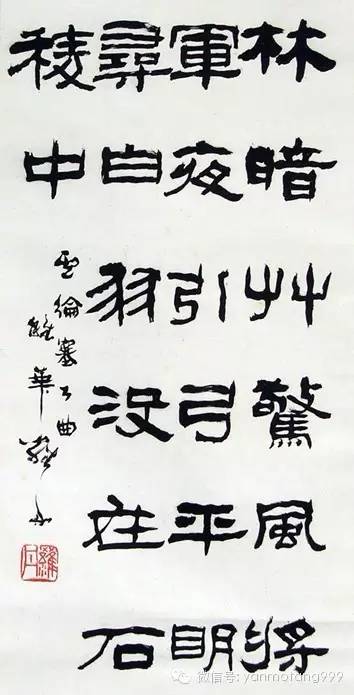 林暗艸驚風将
軍夜引弓平明
尋白羽没在石
稜中
盧綸塞下曲
微信号: yanmofang999